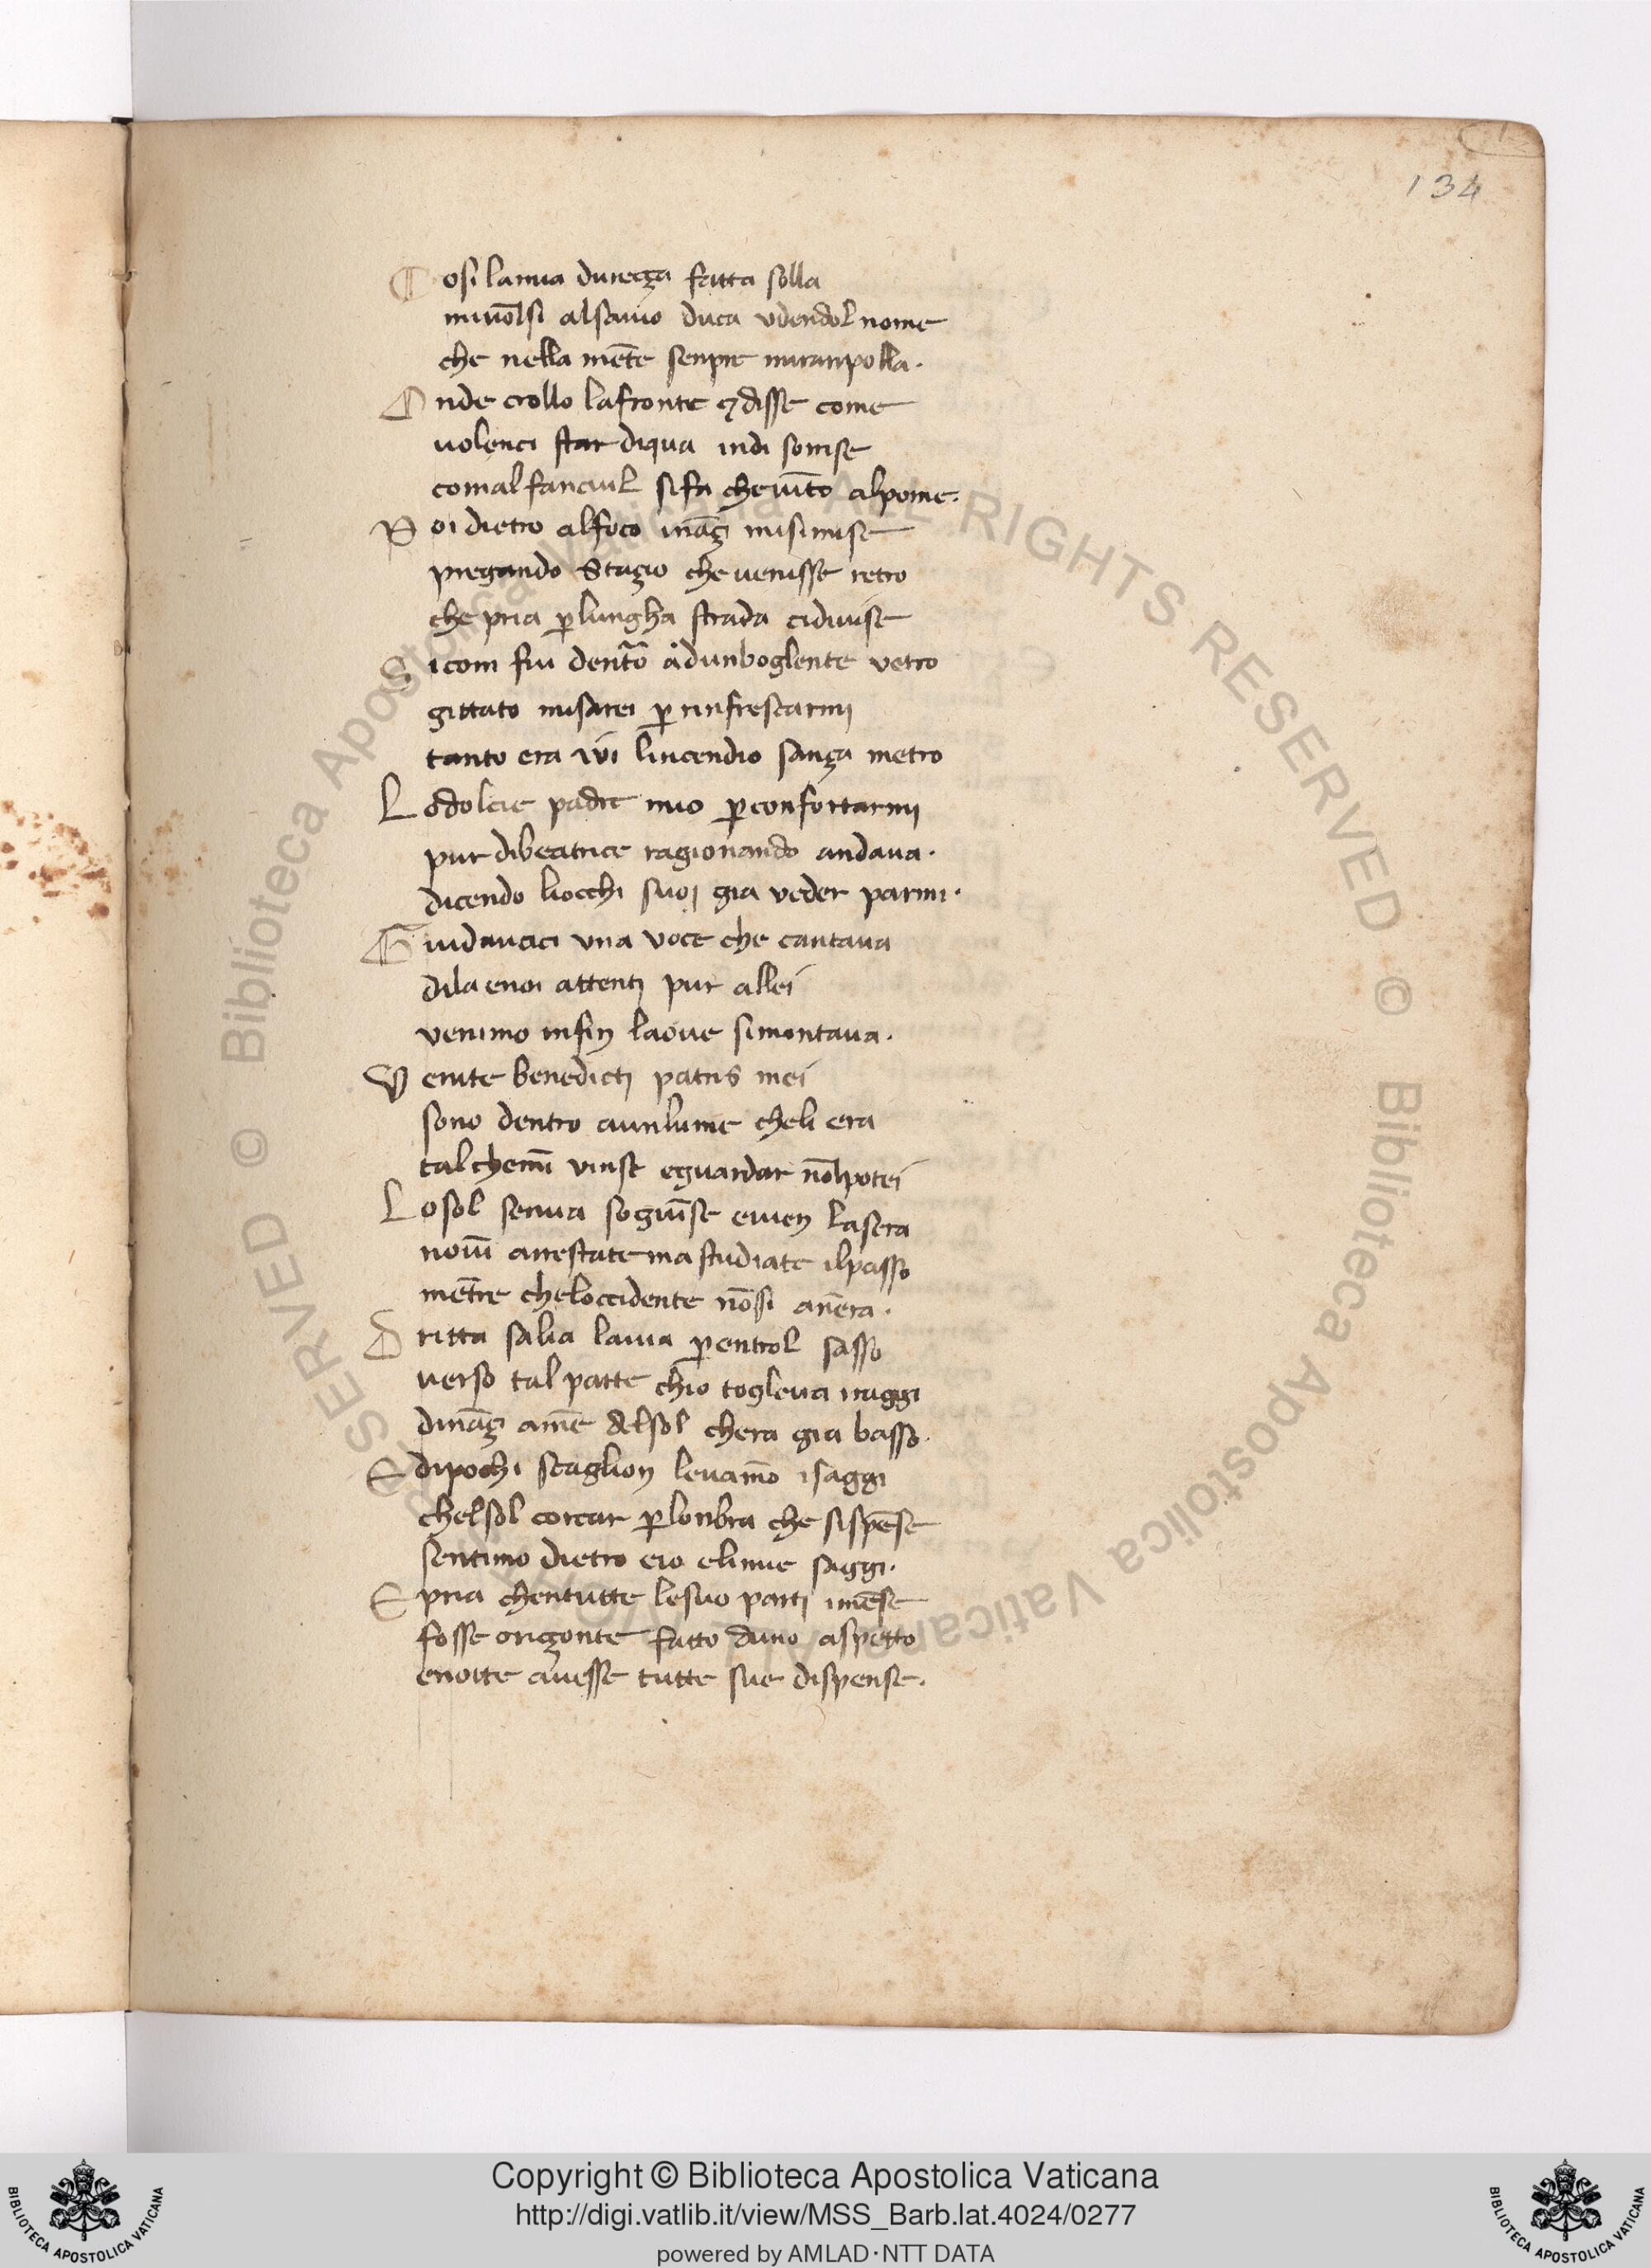 134
Cosi lamia durezza fatta solla
miuolsi alsauio duca vdendol nome
che nella mēte senpre miranpolla.
Onde crollo lafronte 7disse come
uolenci star diqua indi sorrise
comalfanciul sifa cheuīto alpome.
Poi dietro alfoco īnāz misimise
pregando Stazio che uenisse retro
che pria ꝑlungha strada cidiuise
Sicom fui dentro adunboglente vetro
gittato misarei ꝑ rinfrescarmj
tanto era iui lincendio sanza metro
Lodolcie padre mio ꝑconfortarmj
pur dibeatrice ragionando andaua.
dicendo liocchi suoj gia veder parmi.
Guidauaci vna voce che cantaua
dila enoi attentj pur allei
venimo infin laoue simontaua.
Venite benedictj patris mei
sono dentro aunlume cheli era
talchemī vinse eguardar nōlpotei
Losol senua sogiūse euien lasera
nōuī arrestate ma studiate ilpasso
mētre cheloccidente nōsi anera.
Dritta salia lauia ꝑentrol sasso
uerso tal parte chio togleua iraggi
dināzi amē delsol chera gia basso.
Edipochi scaglion leuamō isaggi
chelsol corcar ꝑlonbra che sispēse
sentimo dietro eio elimie saggi.
Epria chentutte lesuo partj imēse
fosse orizonte fatto duno aspetto
enotte auesse tutte sue dispense.
© Biblioteca Apostolica Vaticana ALL RIGHTS RESERVED © Biblioteca Apostolica Vaticana ALL RIGHTS RESERVED
Copyright © Biblioteca Apostolica Vaticana
http://digi.vatlib.it/view/MSS_Barb.lat.4024/0277
powered by AMLAD·NTT DATA
BIBLIOTECA APOSTOLICA VATICANA
BIBLIOTECA APOSTOLICA VATICANA